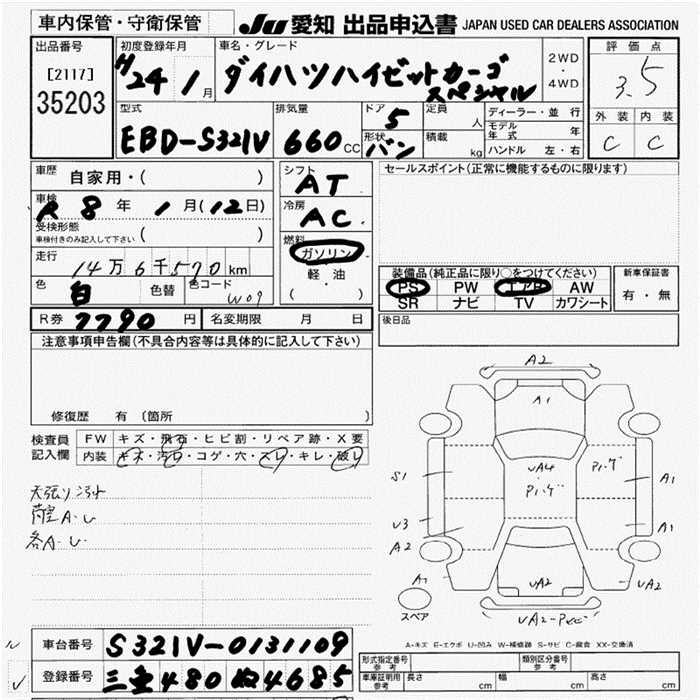 車内保管・守衛保管
JU 愛知 出品申込書 JAPAN USED CAR DEALERS ASSOCIATION
出品番号
[2117]
35203
初度登録年月
H24 1月
車名・グレード
ダイハツハイゼットカーゴ
スペシャル
2WD
・
4WD
評価点
3.5
外装 内装
C C
型式
EBD-S321V
排気量
660cc
ドア
5
形状
バン
定員
人
積載
kg
ディーラー・並行
モデル年式 年
ハンドル 左・右
車歴
自家用・( )
車検
R8年 1月(12日)
受検形態
車検付きのみ記入して下さい ( )
走行
14万6千570km
色
白
色替
色コード
W09
シフト
AT
冷房
AC
燃料
ガソリン
軽・油
( )
セールスポイント(正常に機能するものに限ります)
装備品(純正品に限り○をつけてください)
PS PW エアB AW
SR ナビ TV カワシート
新車保証書
有・無
R券 7790円
名変期限 月 日
後日品
注意事項申告欄(不具合内容等は具体的に記入して下さい)
修復歴 有(箇所
検査員
記入欄
FW キズ・飛石・ヒビ割・リペア跡・X要
内装 キズ・汚れ・コゲ・穴・スレ・キレ・破レ
天張り汚れ
荷室A.U
各A.U
A2
A1
UA4
S1
U3
A2
A1
A1
UA2
UA2
スペア
A-キズ E-エクボ U-凹み W-補修跡 S-サビ C-腐食 XX-交換済
車台番号 S321V-0131109
登録番号 三重480ぬ4685
形式指定番号
参考
類別区分番号
参考
車庫証明用
参考
長さ cm 幅 cm 高さ cm